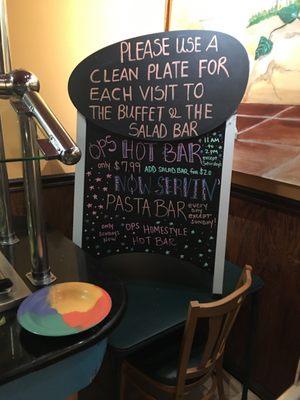 PLEASE USE A
CLEAN PLATE FOR
EACH VISIT TO
THE BUFFET & THE
SALAD BAR
OPS HOT BAR
11 AM
to
2 PM
EXCEPT
SATURDAY!
only $7.99
ADD SALAD BAR FOR $2.00
NOW SERVIN'
PASTA BAR
EVERY
DAY
EXCEPT
SUNDAY!
only on
SUNDAYS NOW
OPS HOMESTYLE
HOT BAR